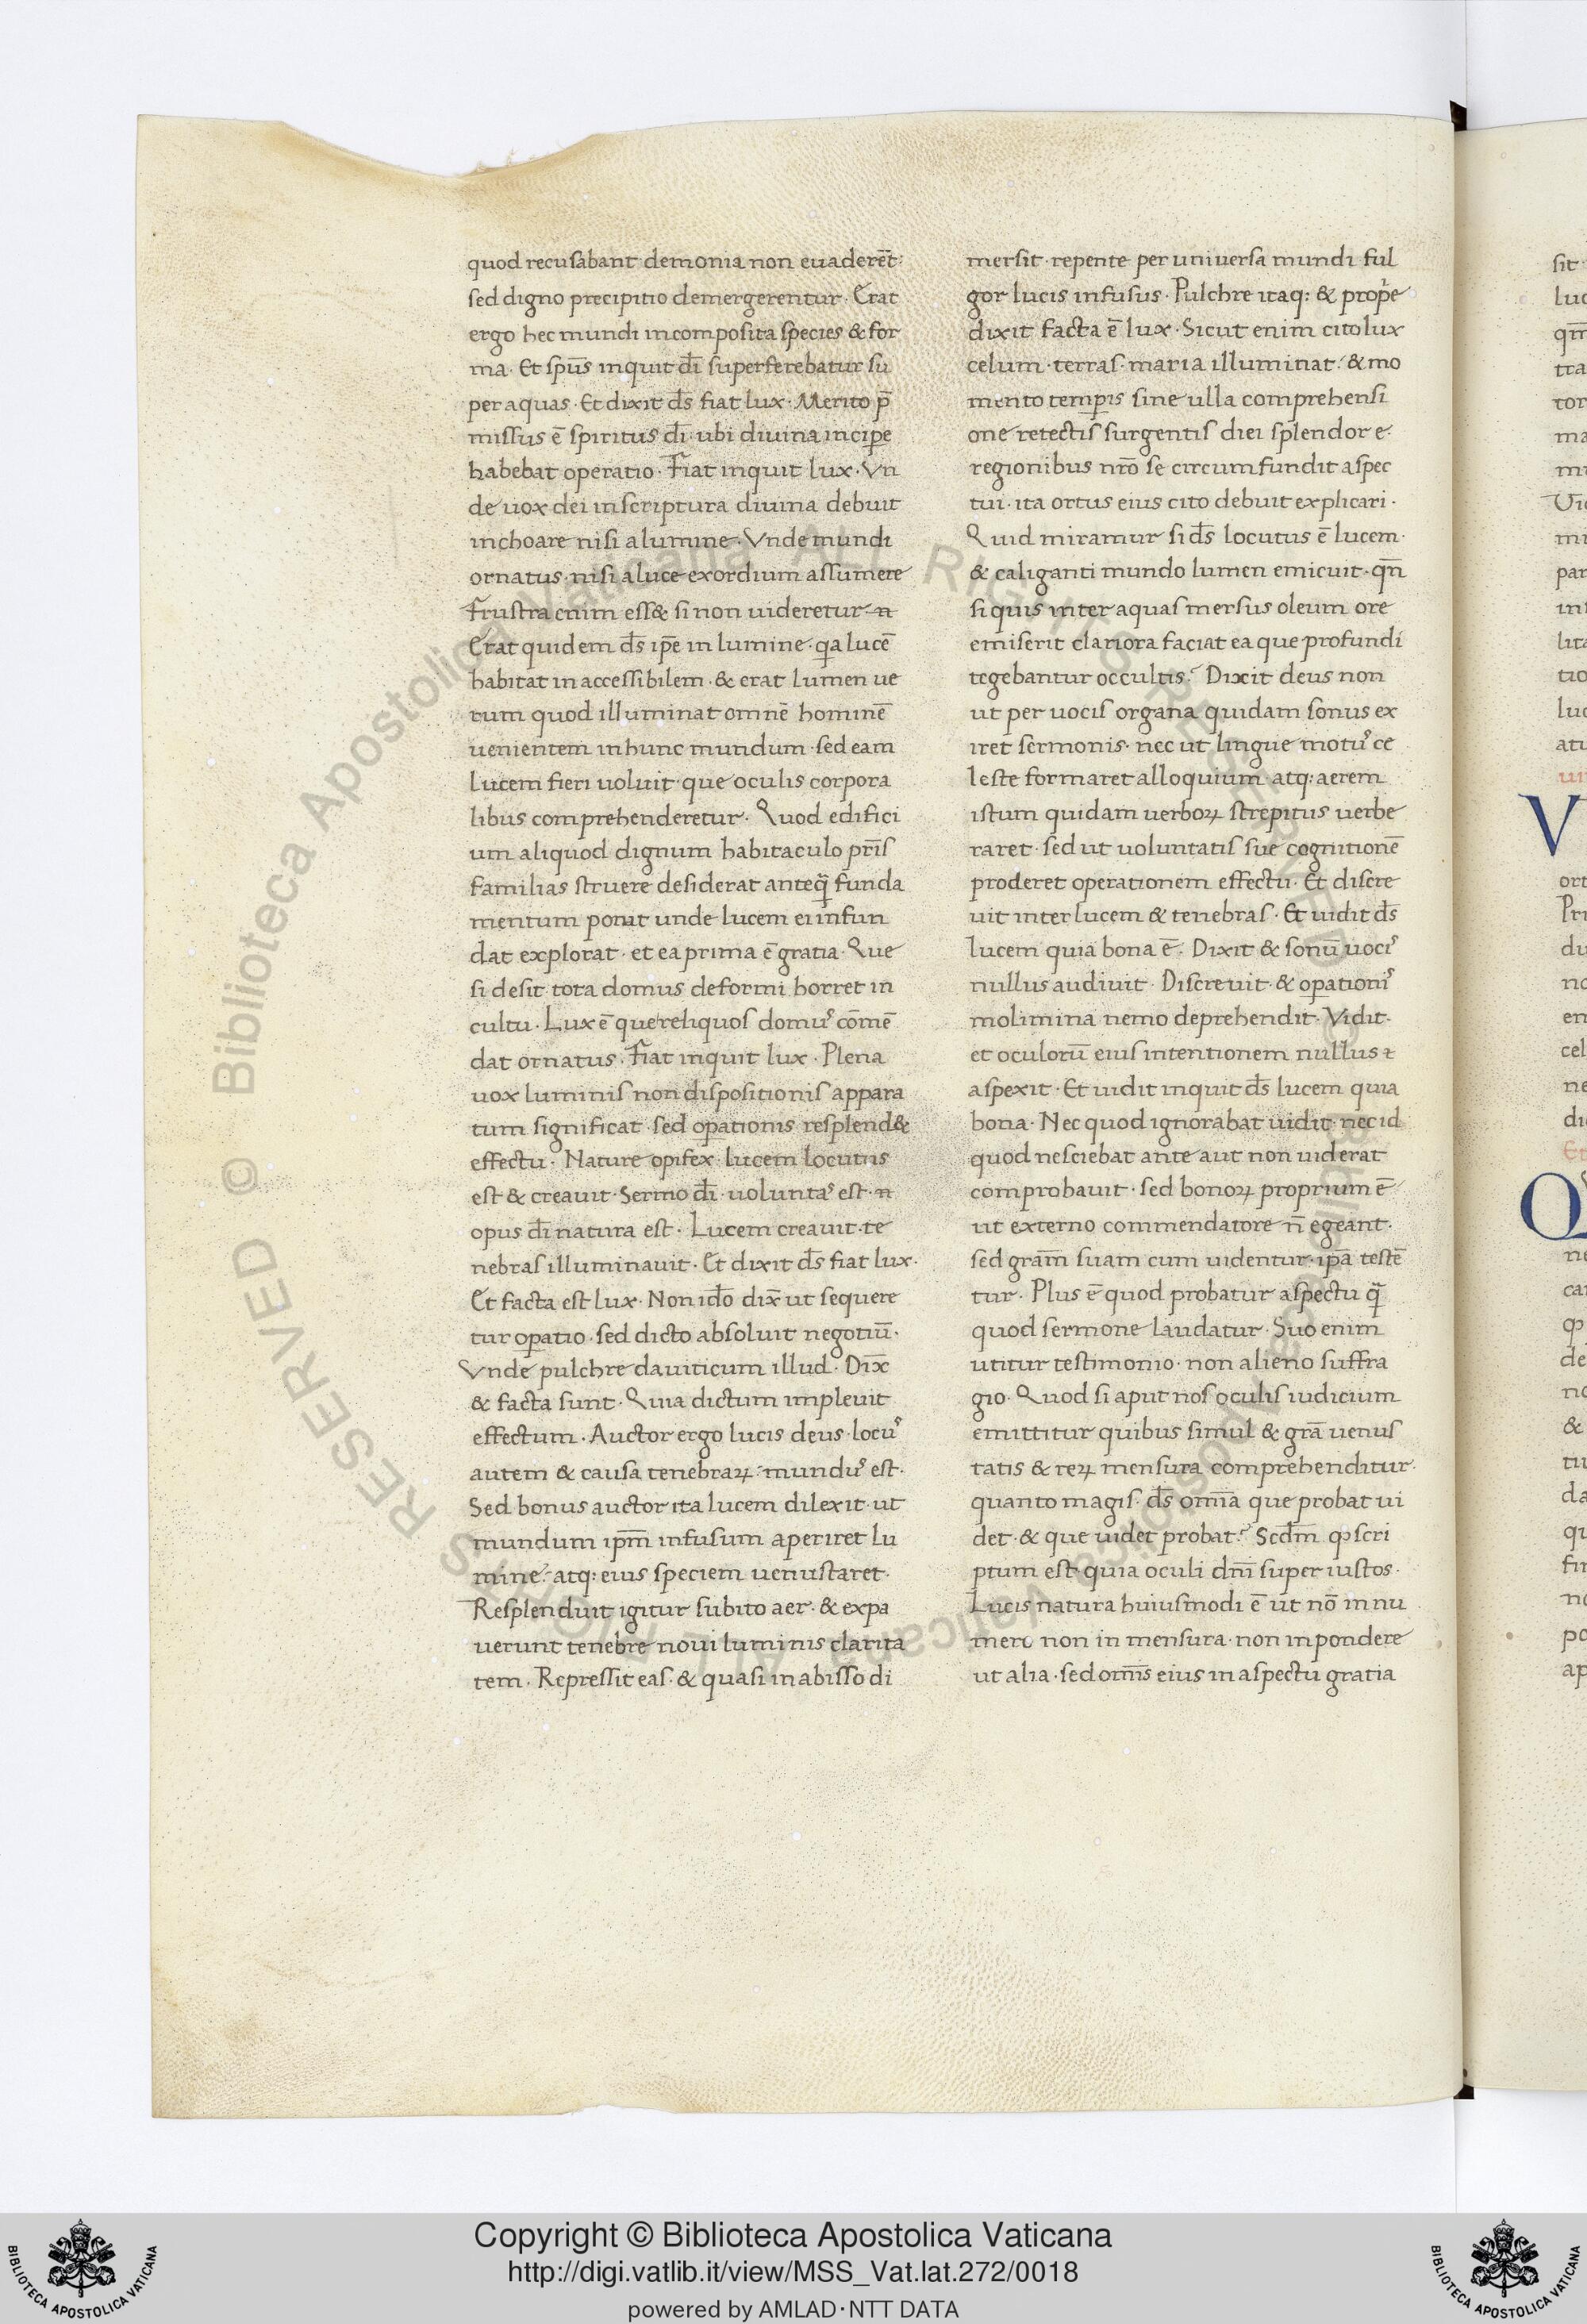 quod recusabant demonia non euaderēt:
sed digno precipitio demergerentur. Erat
ergo hec mundi incomposita species & for
ma. Et spūs inquit dī superferebatur su
per aquas. Et dixit ds̄ fiat lux. Merito p̄
missus ē spiritus dī. ubi diuina incipe
habebat operatio. Fiat inquit lux. Vn
de uox dei in scriptura diuina debuit
inchoare nisi a lumine. Vnde mundi
ornatus. nisi a luce exordium assumere
Frustra enim ess& si non uideretur
Erat quidem ds̄ ip̄e in lumine. qa lucē
habitat inaccessibilem. & erat lumen ue
rum quod illuminat omnē hominē
uenientem in hunc mundum. sed eam
lucem fieri uoluit. que oculis corpora
libus comprehenderetur. Quod edifici
um aliquod dignum habitaculo pr̄is
familias struere desiderat anteq̄ funda
mentum ponat unde lucem ei infun
dat explorat. et ea prima ē gratia. Que
si desit tota domus deformi horret in
cultu. Lux ē que reliquos domus cōmē
dat ornatus. Fiat inquit lux. Plena
uox luminis non dispositionis appara
tum significat. sed opationis resplend&
effectu. Nature opifex lucem locutus
est & creauit. Sermo dī. uoluntas est.
opus dī natura est. Lucem creauit. te
nebras illuminauit. Et dixit ds̄ fiat lux.
Et facta est lux. Non idō dix̄ ut sequere
tur opatio. sed dicto absoluit negotiū.
Vnde pulchre dauiticum illud. Dix̄
& facta sunt. Quia dictum impleuit
effectum. Auctor ergo lucis deus. locus
autem & causa tenebraꝝ mundus est.
Sed bonus auctor ita lucem dilexit. ut
mundum ip̄m infusum aperiret lu
mine. atq: eius speciem uenustaret.
Resplenduit igitur subito aer. & expa
uerunt tenebre noui luminis clarita
tem. Repressit eas. & quasi in abisso di
mersit. repente per uniuersa mundi ful
gor lucis infusus. Pulchre itaq: & prop̄e
dixit facta ē lux. Sicut enim cito lux
celum. terras. maria illuminat. & mo
mento tempis sine ulla comprehensi
one retectis surgentis diei splendore
regionibus nr̄o se circumfundit aspec
tui. ita ortus eius cito debuit explicari.
Quid miramur si ds̄ locutus ē lucem.
& caliganti mundo lumen emicuit. qn̄
si quis inter aquas mersus oleum ore
emiserit clariora faciat ea que profundi
tegebantur occultis? Dixit deus non
ut per uocis organa quidam sonus ex
iret sermonis. nec ut lingue motus ce
leste formaret alloquium atq: aerem
istum quidam uerboꝝ strepitus uerbe
raret. sed ut uoluntatis sue cognitionē
proderet operationem effectu. Et discre
uit inter lucem & tenebras. Et uidit ds̄
lucem quia bona ē. Dixit & sonū uocis
nullus audiuit. Discreuit. & opationis
molimina nemo deprehendit. Vidit.
et oculorū eius intentionem nullus
aspexit. Et uidit inquit ds̄ lucem quia
bona. Nec quod ignorabat uidit. nec id
quod nesciebat ante aut non uiderat
comprobauit. sed bonoꝝ proprium ē
ut externo commendatore n̄ egeant.
sed gram̄ suam cum uidentur. ip̄a testē
tur. Plus ē quod probatur aspectu q̄
quod sermone laudatur. Suo enim
utitur testimonio. non alieno suffra
gio. Quod si aput nos oculis iudicium
emittitur quibus simul & grā uenus
tatis & reꝝ mensura comprehenditur.
quanto magis. ds̄ omīa que probat ui
det. & que uidet probat? Scd̄m ꝙ scri
ptum est. quia oculi dn̄i super iustos.
Lucis natura huiusmodi ē ut nō in nu
mero non in mensura. non in pondere
ut alia. sed om̄is eius in aspectu gratia
Copyright © Biblioteca Apostolica Vaticana
http://digi.vatlib.it/view/MSS_Vat.lat.272/0018
powered by AMLAD·NTT DATA